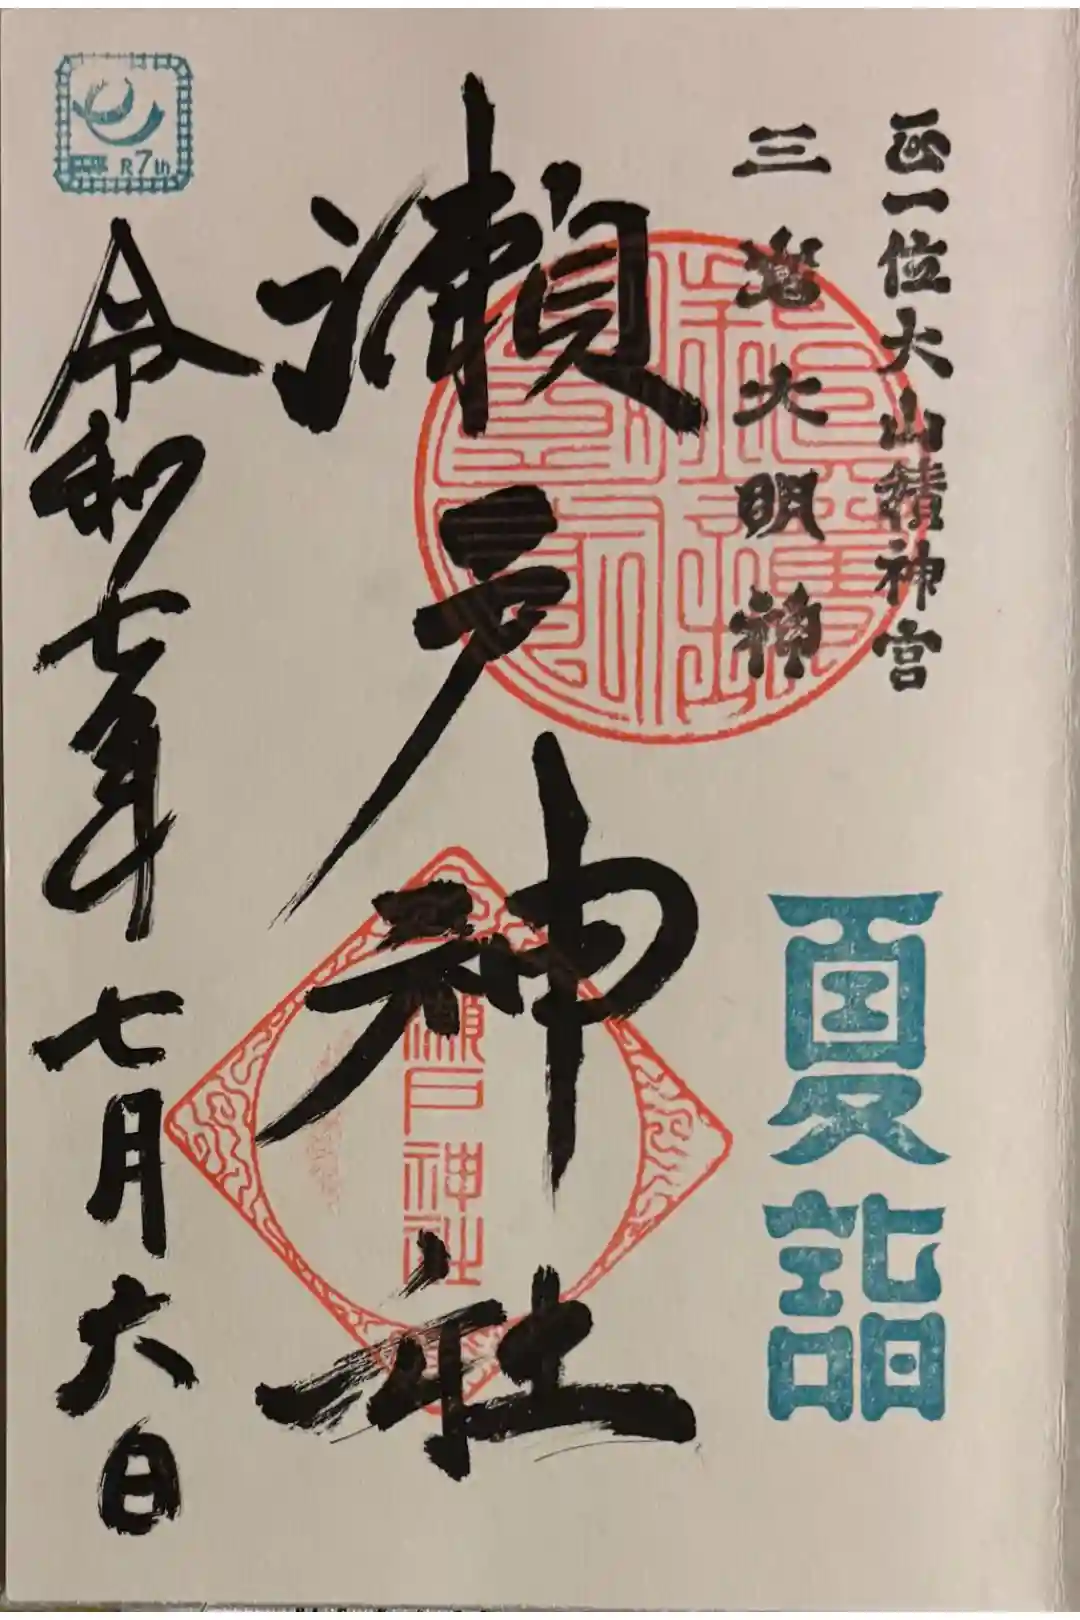 正一位大山積神宮
三嶌大明神
夏詣
瀬戸神社
瀬戸神社
令和七年七月六日
R7th